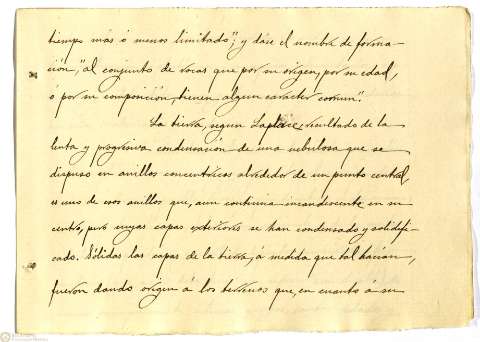 tiempo más ó menos limitado"; y dáse el nombre de forma-
ción, "al conjunto de rocas que por su origen, por su edad,
ó por su composición, tienen algun carácter comun".
La tierra, segun Laplace, resultado de la
lenta y progresiva condensación de una nebulosa que se
dispuso en anillos concentricos alrededor de un punto central,
es uno de esos anillos que, aun continua incandescente en su
centro, pero cuyas capas exteriores se han condensado y solidifi-
cado. Sólidas las capas de la tierra, á medida que tal hacian,
fueron dando origen á los terrenos que, en cuanto á su